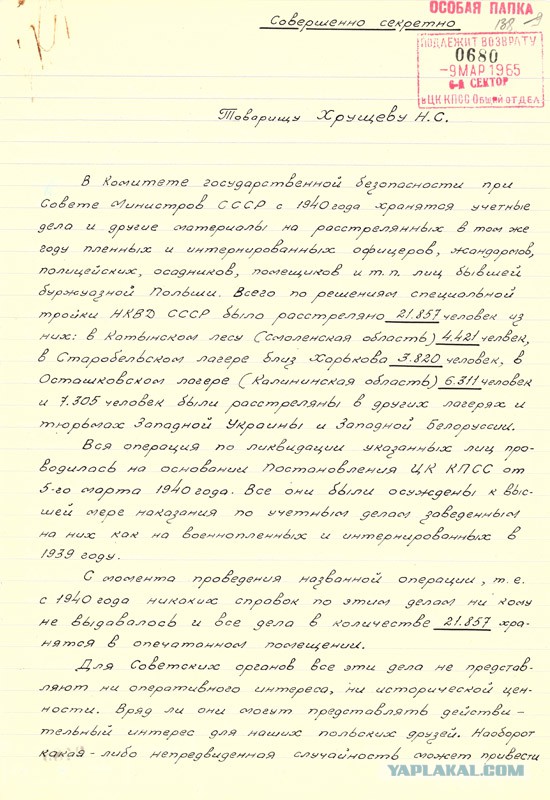 ОСОБАЯ ПАПКА
Совершенно секретно
ПОДЛЕЖИТ ВОЗВРАТУ
0680
-9 МАР 1965
6-й СЕКТОР
в ЦК КПСС Общий отдел
Товарищу Хрущеву Н.С.
В Комитете государственной безопасности при
Совете Министров СССР с 1940 года хранятся учетные
дела и другие материалы на расстрелянных в том же
году пленных и интернированных офицеров, жандармов,
полицейских, осадников, помещиков и т.п. лиц бывшей
буржуазной Польши. Всего по решениям специальной
тройки НКВД СССР было расстреляно 21.857 человек из
них: в Катынском лесу (Смоленская область) 4.421 человек,
в Старобельском лагере близ Харькова 3.820 человек, в
Осташковском лагере (Калининская область) 6.311 человек
и 7.305 человек были расстреляны в других лагерях и
тюрьмах Западной Украины и Западной Белоруссии.
Вся операция по ликвидации указанных лиц про-
водилась на основании Постановления ЦК КПСС от
5-го марта 1940 года. Все они были осуждены к выс-
шей мере наказания по учетным делам заведенным
на них как на военнопленных и интернированных в
1939 году.
С момента проведения названной операции, т.е.
с 1940 года никаких справок по этим делам ни кому
не выдавалось и все дела в количестве 21.857 хра-
нятся в опечатанном помещении.
Для Советских органов все эти дела не представ-
ляют ни оперативного интереса, ни исторической цен-
ности. Вряд ли они могут представлять действи-
тельный интерес для наших польских друзей. Наоборот
какая-либо непредвиденная случайность может привести
YAPLAKAL.COM